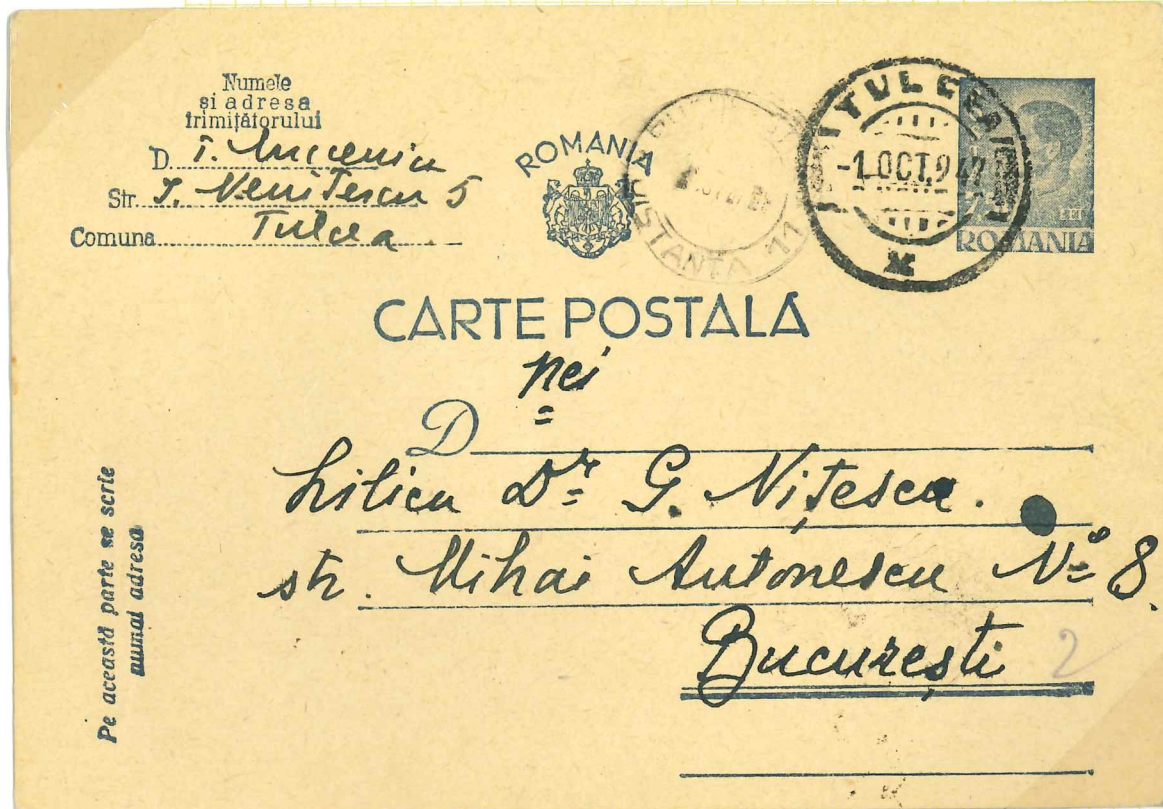 Numele
si adresa
trimițătorului
D. T.
Str. J. 5
Comuna Tulcea
ROMANIA
TULCEA
-1.OCT.942
LEI
ROMANIA
CARTE POSTALĂ
D nei
Lilica Dr G. Nițescu.
str. Mihai Antonescu No 8.
București 2
Pe această parte se scrie
numai adresa